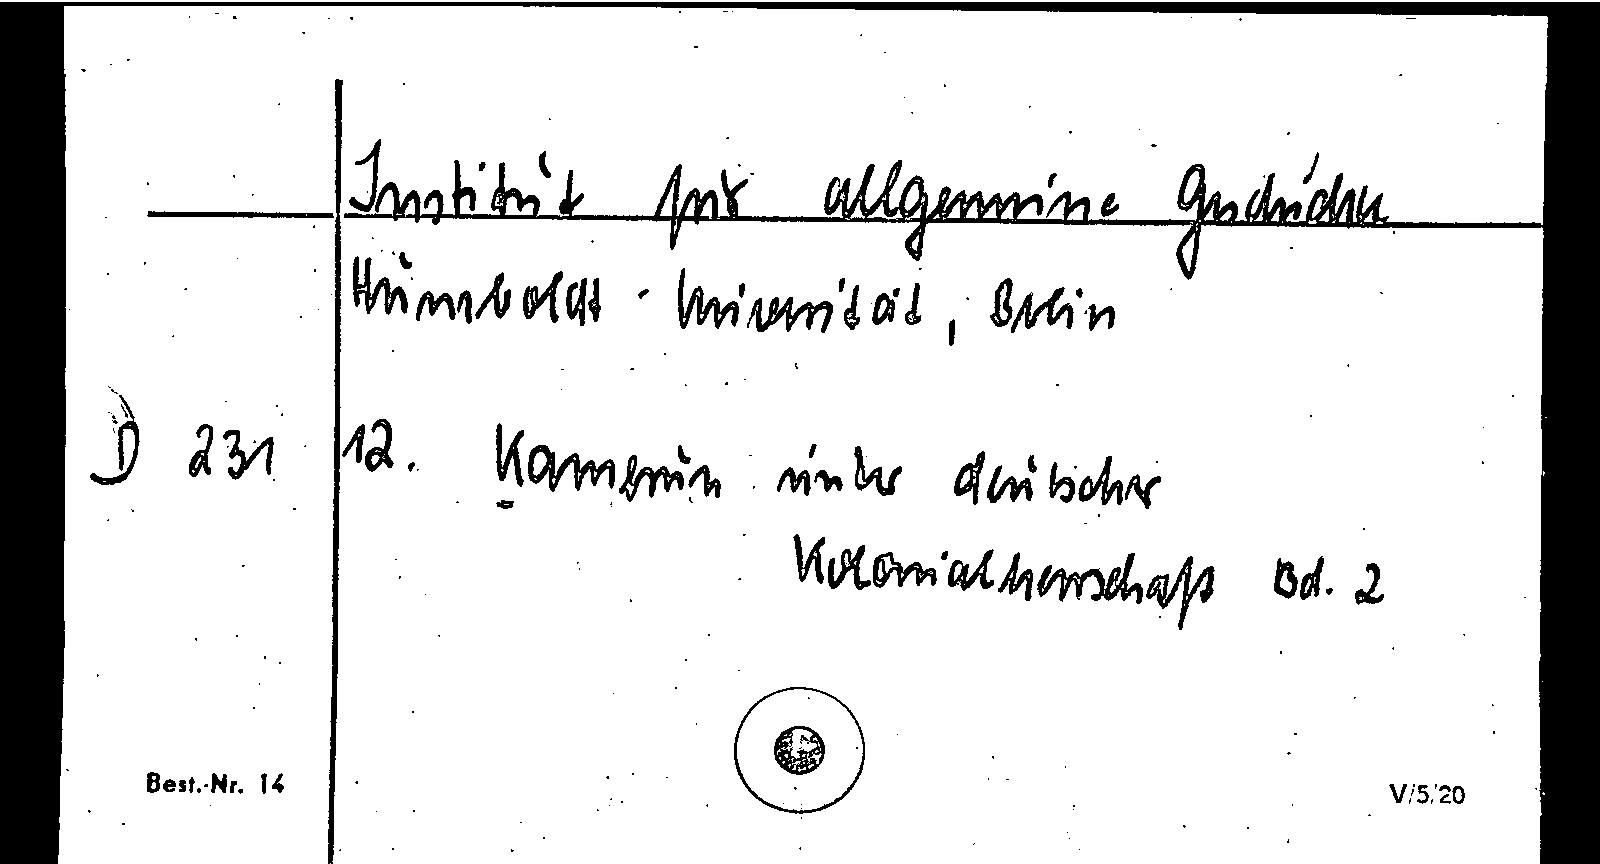 Institut für allgemeine Geschichte
Humboldt-Universität, Berlin
D 231 12. Kamerun unter deutscher
Kolonialherrschaft Bd. 2
Best.-Nr. 14 V/5/20